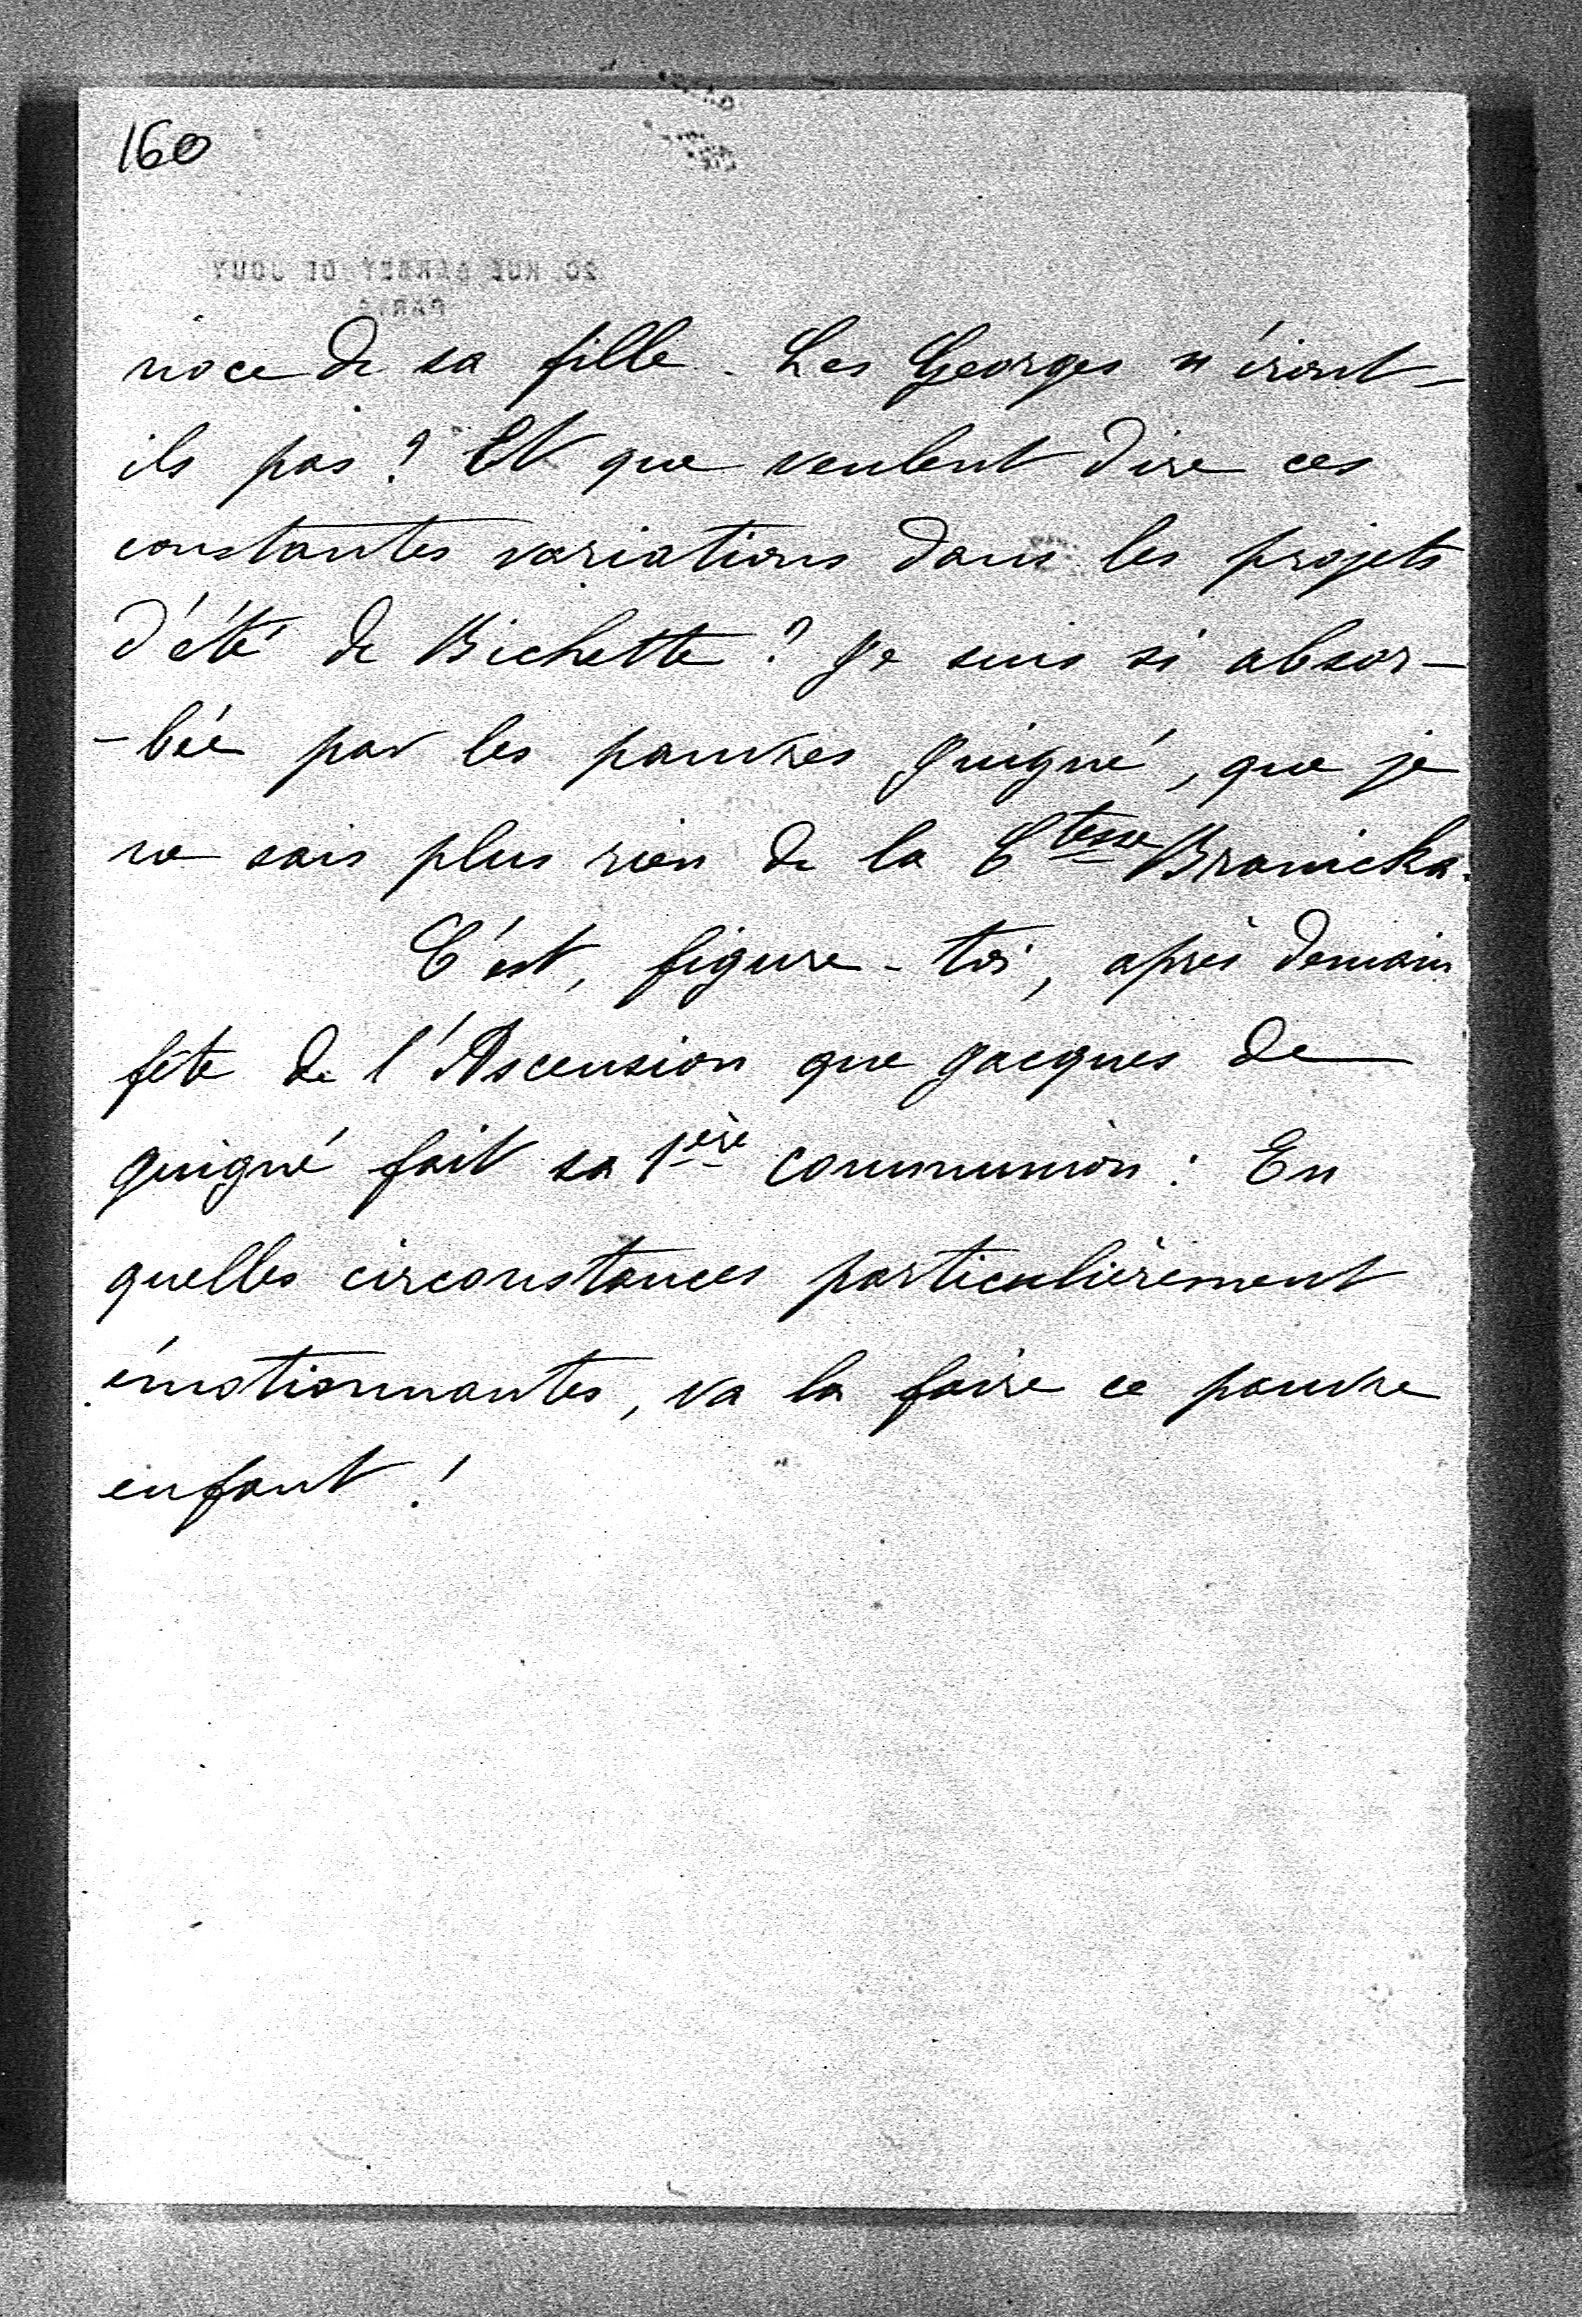 160
20, RUE BARBET DE JOUY
PARIS
noce de sa fille. Les Georges n'iront-
ils pas? Et que veulent dire ces
constantes variations dans les projets
d'été de Bichette? Je suis si absor-
-bée par les pauvres Guigné, que je
ne sais plus rien de la Ctesse Branicka.
C'est, figure-toi, après demain
fête de l'Ascension que Jacques de
Guigné fait sa 1ère communion: En
quelles circonstances particulièrement
émotionnantes, va la faire ce pauvre
enfant!